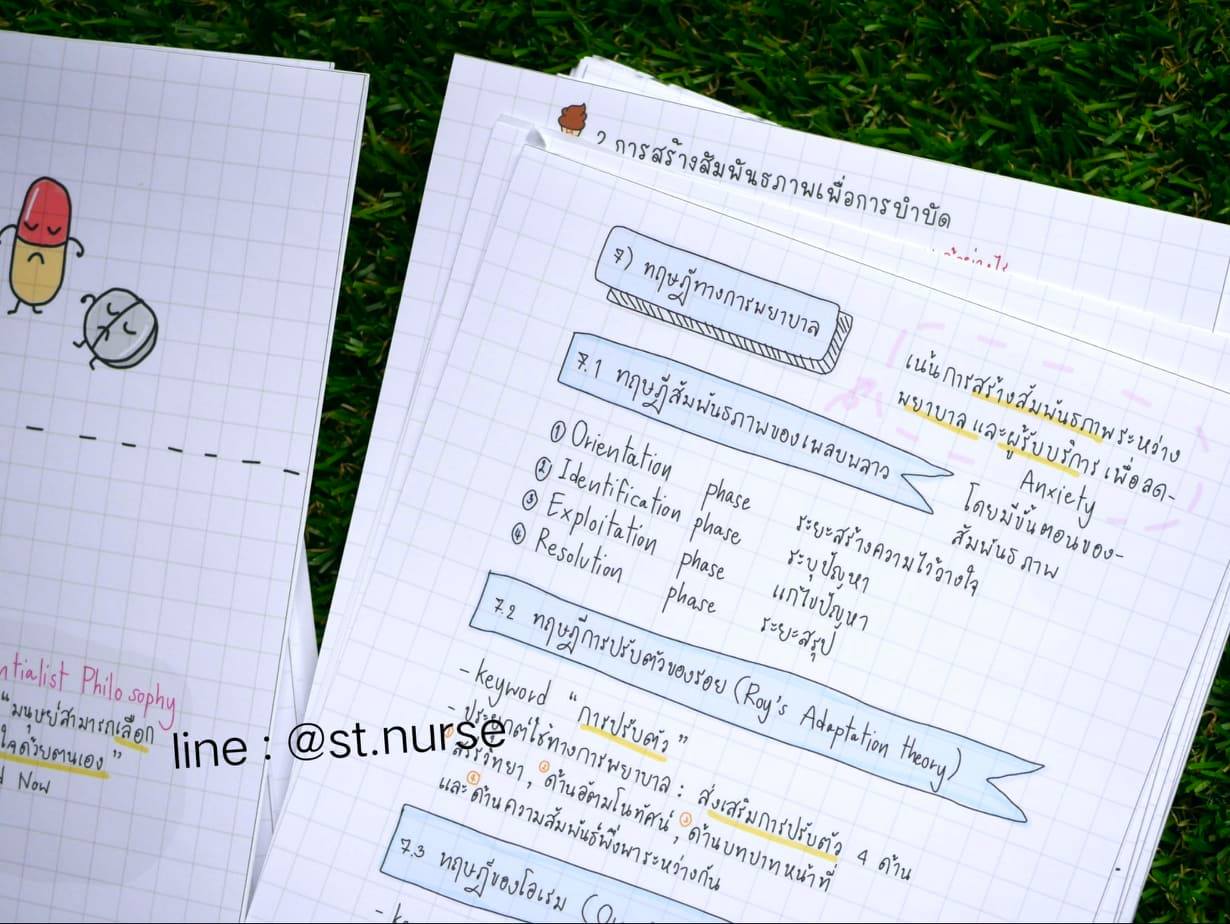 ntialist Philosophy
"มนุษย์สามารถเลือก
ใจด้วยตนเอง"
Now
line : @st.nurse
การสร้างสัมพันธภาพเพื่อการบำบัด
7) ทฤษฎีทางการพยาบาล
7.1 ทฤษฎีสัมพันธภาพของเพลบพลาว
เน้นการสร้างสัมพันธภาพระหว่าง
พยาบาล และผู้รับบริการ เพื่อลด-
Anxiety
โดยมีขั้นตอนของ-
สัมพันธภาพ
① Orientation phase ระยะสร้างความไว้วางใจ
② Identification phase ระบุปัญหา
③ Exploitation phase แก้ไขปัญหา
④ Resolution phase ระยะสรุป
7.2 ทฤษฎีการปรับตัวของรอย (Roy's Adaptation theory)
- keyword "การปรับตัว"
- ประยุกต์ใช้ทางการพยาบาล : ส่งเสริมการปรับตัว 4 ด้าน
สรีรวิทยา, ② ด้านอัตมโนทัศน์, ③ ด้านบทบาทหน้าที่
และ ④ ด้านความสัมพันธ์พึ่งพาระหว่างกัน
7.3 ทฤษฎีของโอเรม